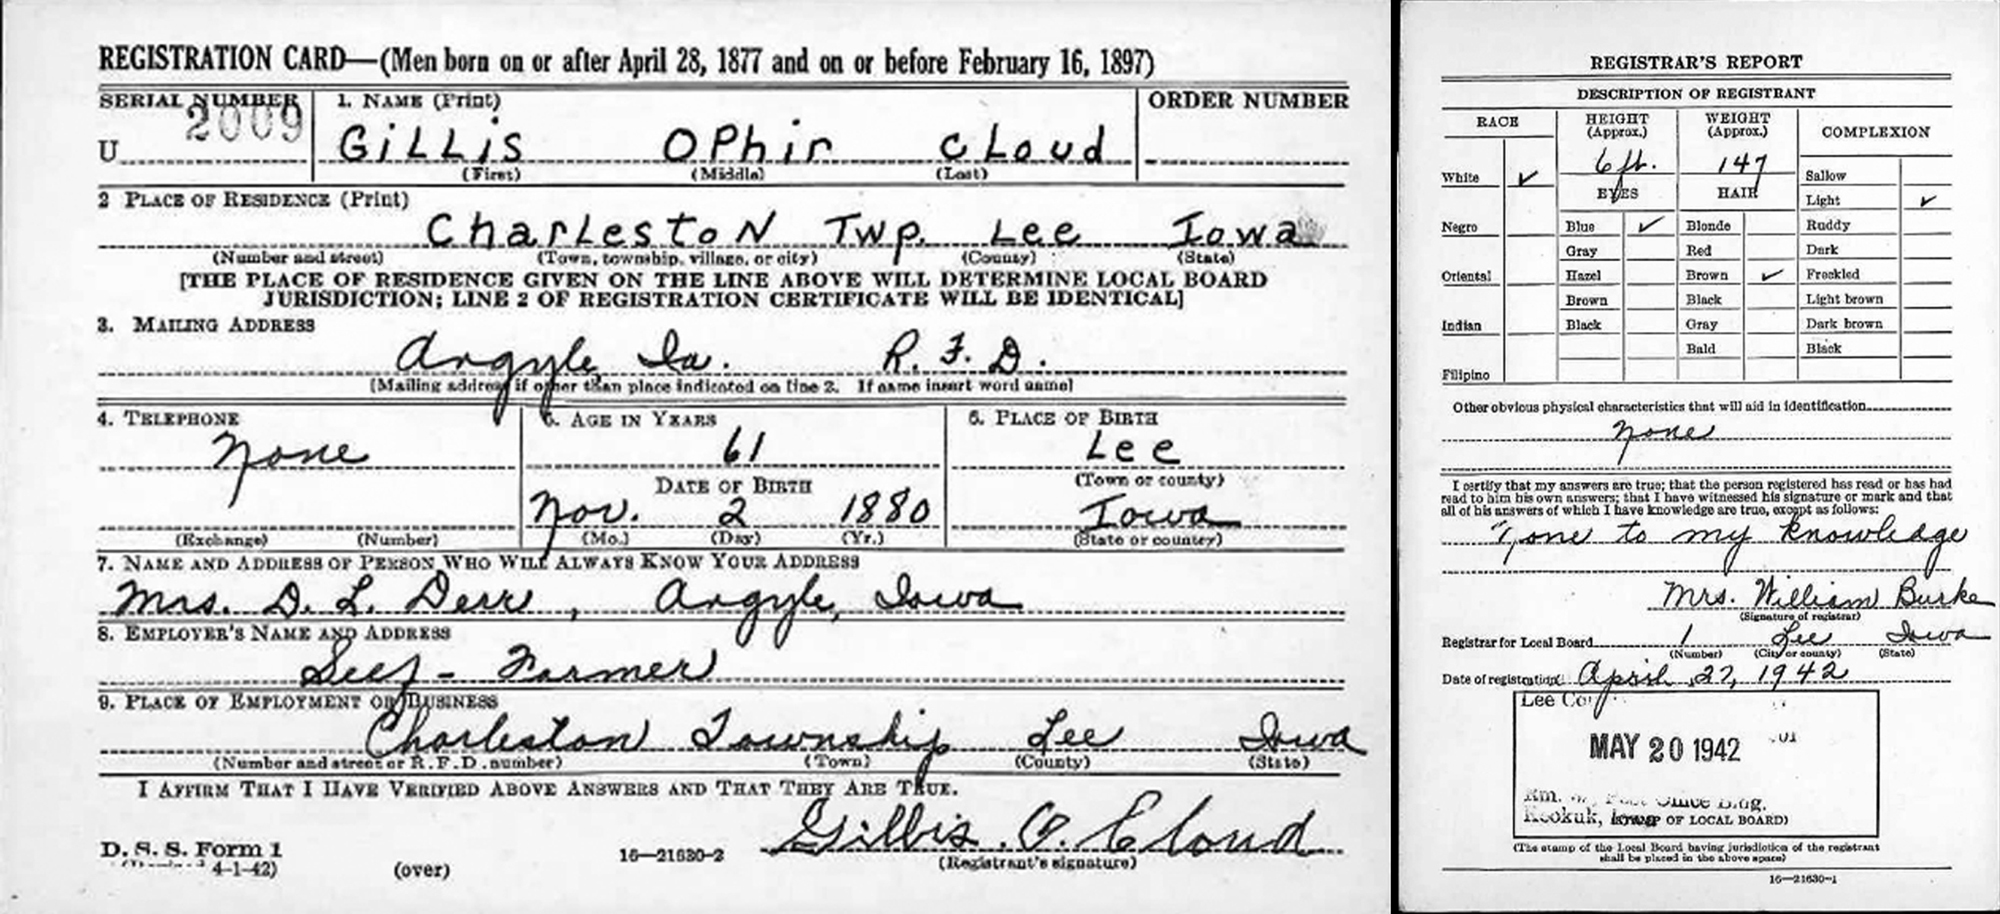 REGISTRATION CARD—(Men born on or after April 28, 1877 and on or before February 16, 1897)
SERIAL NUMBER 1. NAME (Print) ORDER NUMBER
2009
U GiLLiS OPhir CLoud
(First) (Middle) (Last)
2 PLACE OF RESIDENCE (Print)
CharLestoN Twp. Lee Iowa
(Number and street) (Town, township, village, or city) (County) (State)
[THE PLACE OF RESIDENCE GIVEN ON THE LINE ABOVE WILL DETERMINE LOCAL BOARD
JURISDICTION; LINE 2 OF REGISTRATION CERTIFICATE WILL BE IDENTICAL]
3. MAILING ADDRESS
Argyle, Ia. R. F. D.
(Mailing address if other than place indicated on line 2. If same insert word same)
4. TELEPHONE 5. AGE IN YEARS 6. PLACE OF BIRTH
None 61 Lee
DATE OF BIRTH (Town or county)
Nov. 2 1880 Iowa
(Exchange) (Number) (Mo.) (Day) (Yr.) (State or country)
7. NAME AND ADDRESS OF PERSON WHO WILL ALWAYS KNOW YOUR ADDRESS
Mrs. D. L. Derr, Argyle, Iowa
8. EMPLOYER'S NAME AND ADDRESS
Self - Farmer
9. PLACE OF EMPLOYMENT OR BUSINESS
Charleston Township Lee Iowa
(Number and street or R. F. D. number) (Town) (County) (State)
I AFFIRM THAT I HAVE VERIFIED ABOVE ANSWERS AND THAT THEY ARE TRUE.
Gillis. O. Cloud
D. S. S. Form 1
4-1-42) (over) 16—21630-2 (Registrant's signature)
REGISTRAR'S REPORT
DESCRIPTION OF REGISTRANT
RACE HEIGHT (Approx.) WEIGHT (Approx.) COMPLEXION
6 ft. 147
White ✓ Sallow
EYES HAIR Light ✓
Negro Blue ✓ Blonde Ruddy
Gray Red Dark
Oriental Hazel Brown ✓ Freckled
Brown Black Light brown
Indian Black Gray Dark brown
Bald Black
Filipino
Other obvious physical characteristics that will aid in identification
None
I certify that my answers are true; that the person registered has read or has had
read to him his own answers; that I have witnessed his signature or mark and that
all of his answers of which I have knowledge are true, except as follows:
None to my knowledge
Mrs. William Burke
(Signature of registrar)
Registrar for Local Board 1 Lee Iowa
(Number) (City or county) (State)
Date of registration April 27, 1942
Lee Co
MAY 20 1942
Rm. Post Office Bldg.
Keokuk, Iowa
OF LOCAL BOARD)
(The stamp of the Local Board having jurisdiction of the registrant
shall be placed in the above space)
16—21630-1